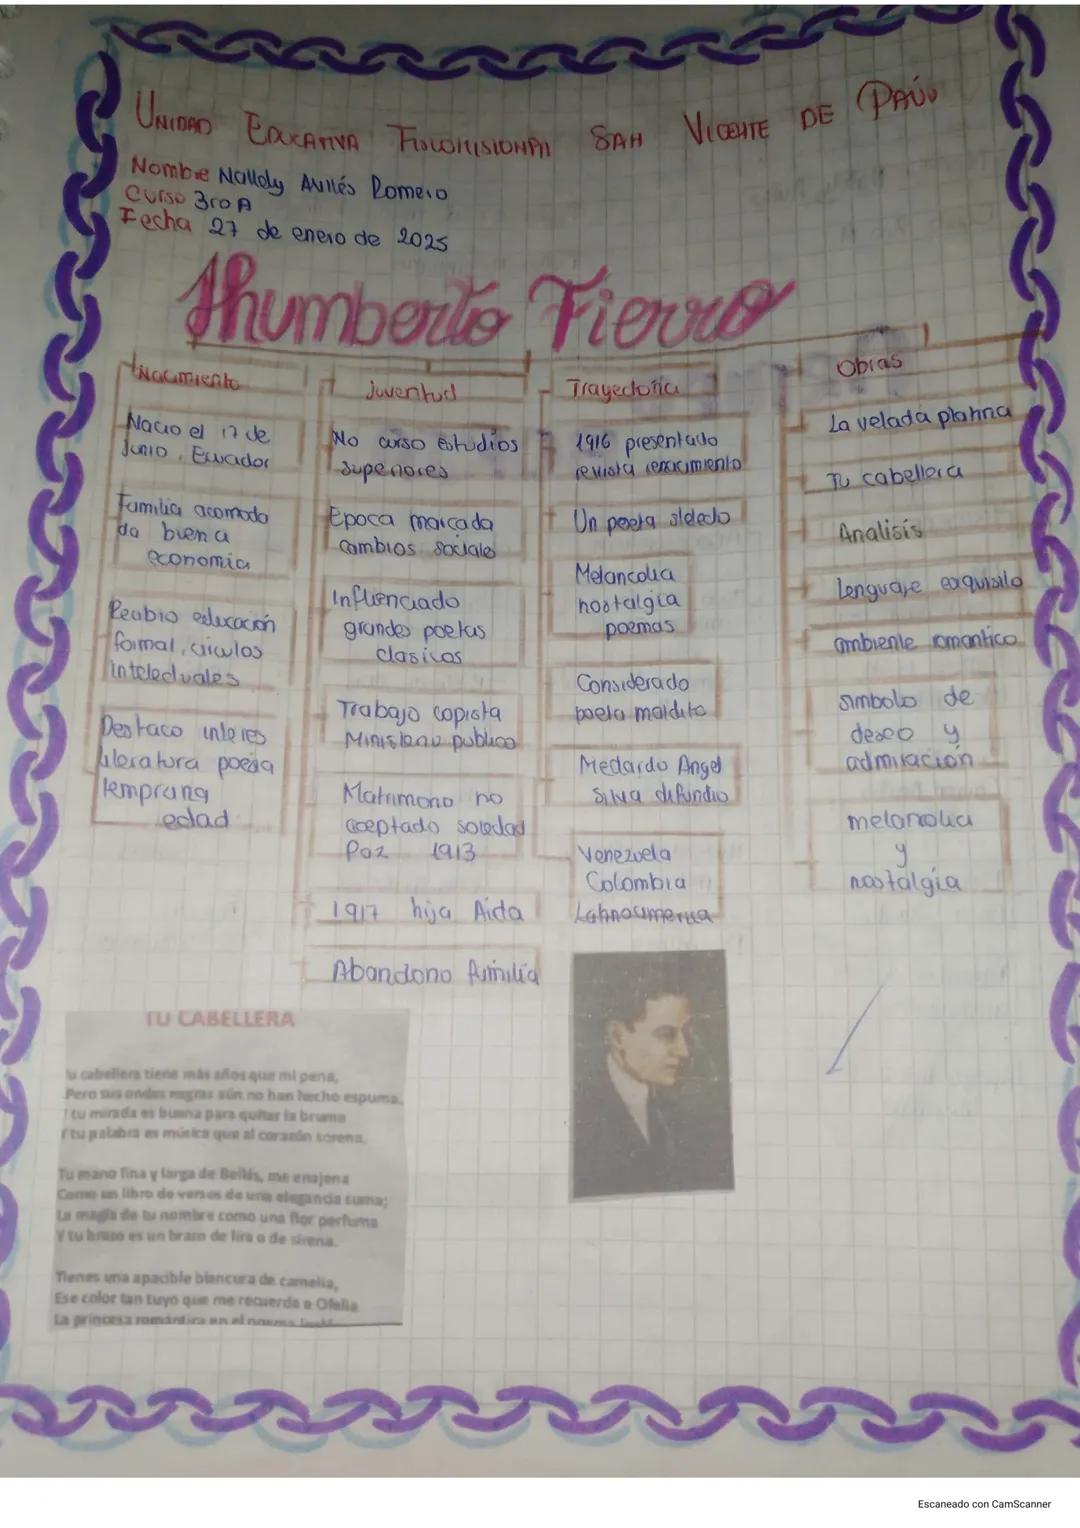 UNIDAD EDUCATIVA FISCOMISIONAL SAN VICENTE DE PAÚL
Nombre Nallely Avilés Romero
Curso 3ro A
Fecha 27 de enero de 2025
Humberto Fierro
Nacimiento
Nacio el 17 de
Junio, Ecuador
Familia acomoda
da buena
economia
Recibio educación
formal, circulos
intelectuales
Destaco interes
literatura poesia
temprana
edad
Juventud
No curso estudios
superiores
Epoca marcada
cambios sociale
Influenciado
grandes poetas
clasicos
Trabajo copista
Ministerio publico
Matrimono no
aceptado soledad
Paz 1913
1917 hija Aida
Abandono familia
Trayectoria
1916 presentado
revista renacimiento
Un poeta selecto
Melancolia
nostalgia
poemas
Considerado
poeta maldito
Medardo Angel
Silva difundio
Venezuela
Colombia
Latinoamerica
Obras
La velada platina
Tu cabellera
Analisis
lenguaje exquisito
ambiente romantico
simbolo de
deseo y
admiración
melancolia
y
nostalgia
TU CABELLERA
Tu cabellera tiene más años que mi pena,
Pero sus ondas negras aún no han hecho espuma.
Y tu mirada es buena para quitar la bruma
Y tu palabra es música que al corazón serena.
Tu mano fina y larga de Belkis, me enajena
Como un libro de versos de una elegancia suma;
La magia de tu nombre como una flor perfuma
Y tu brazo es un brazo de lira o de sirena.
Tienes una apacible blancura de camelia,
Ese color tan tuyo que me recuerda a Ofelia
La princesa romántica en el poema
Escaneado con CamScanner